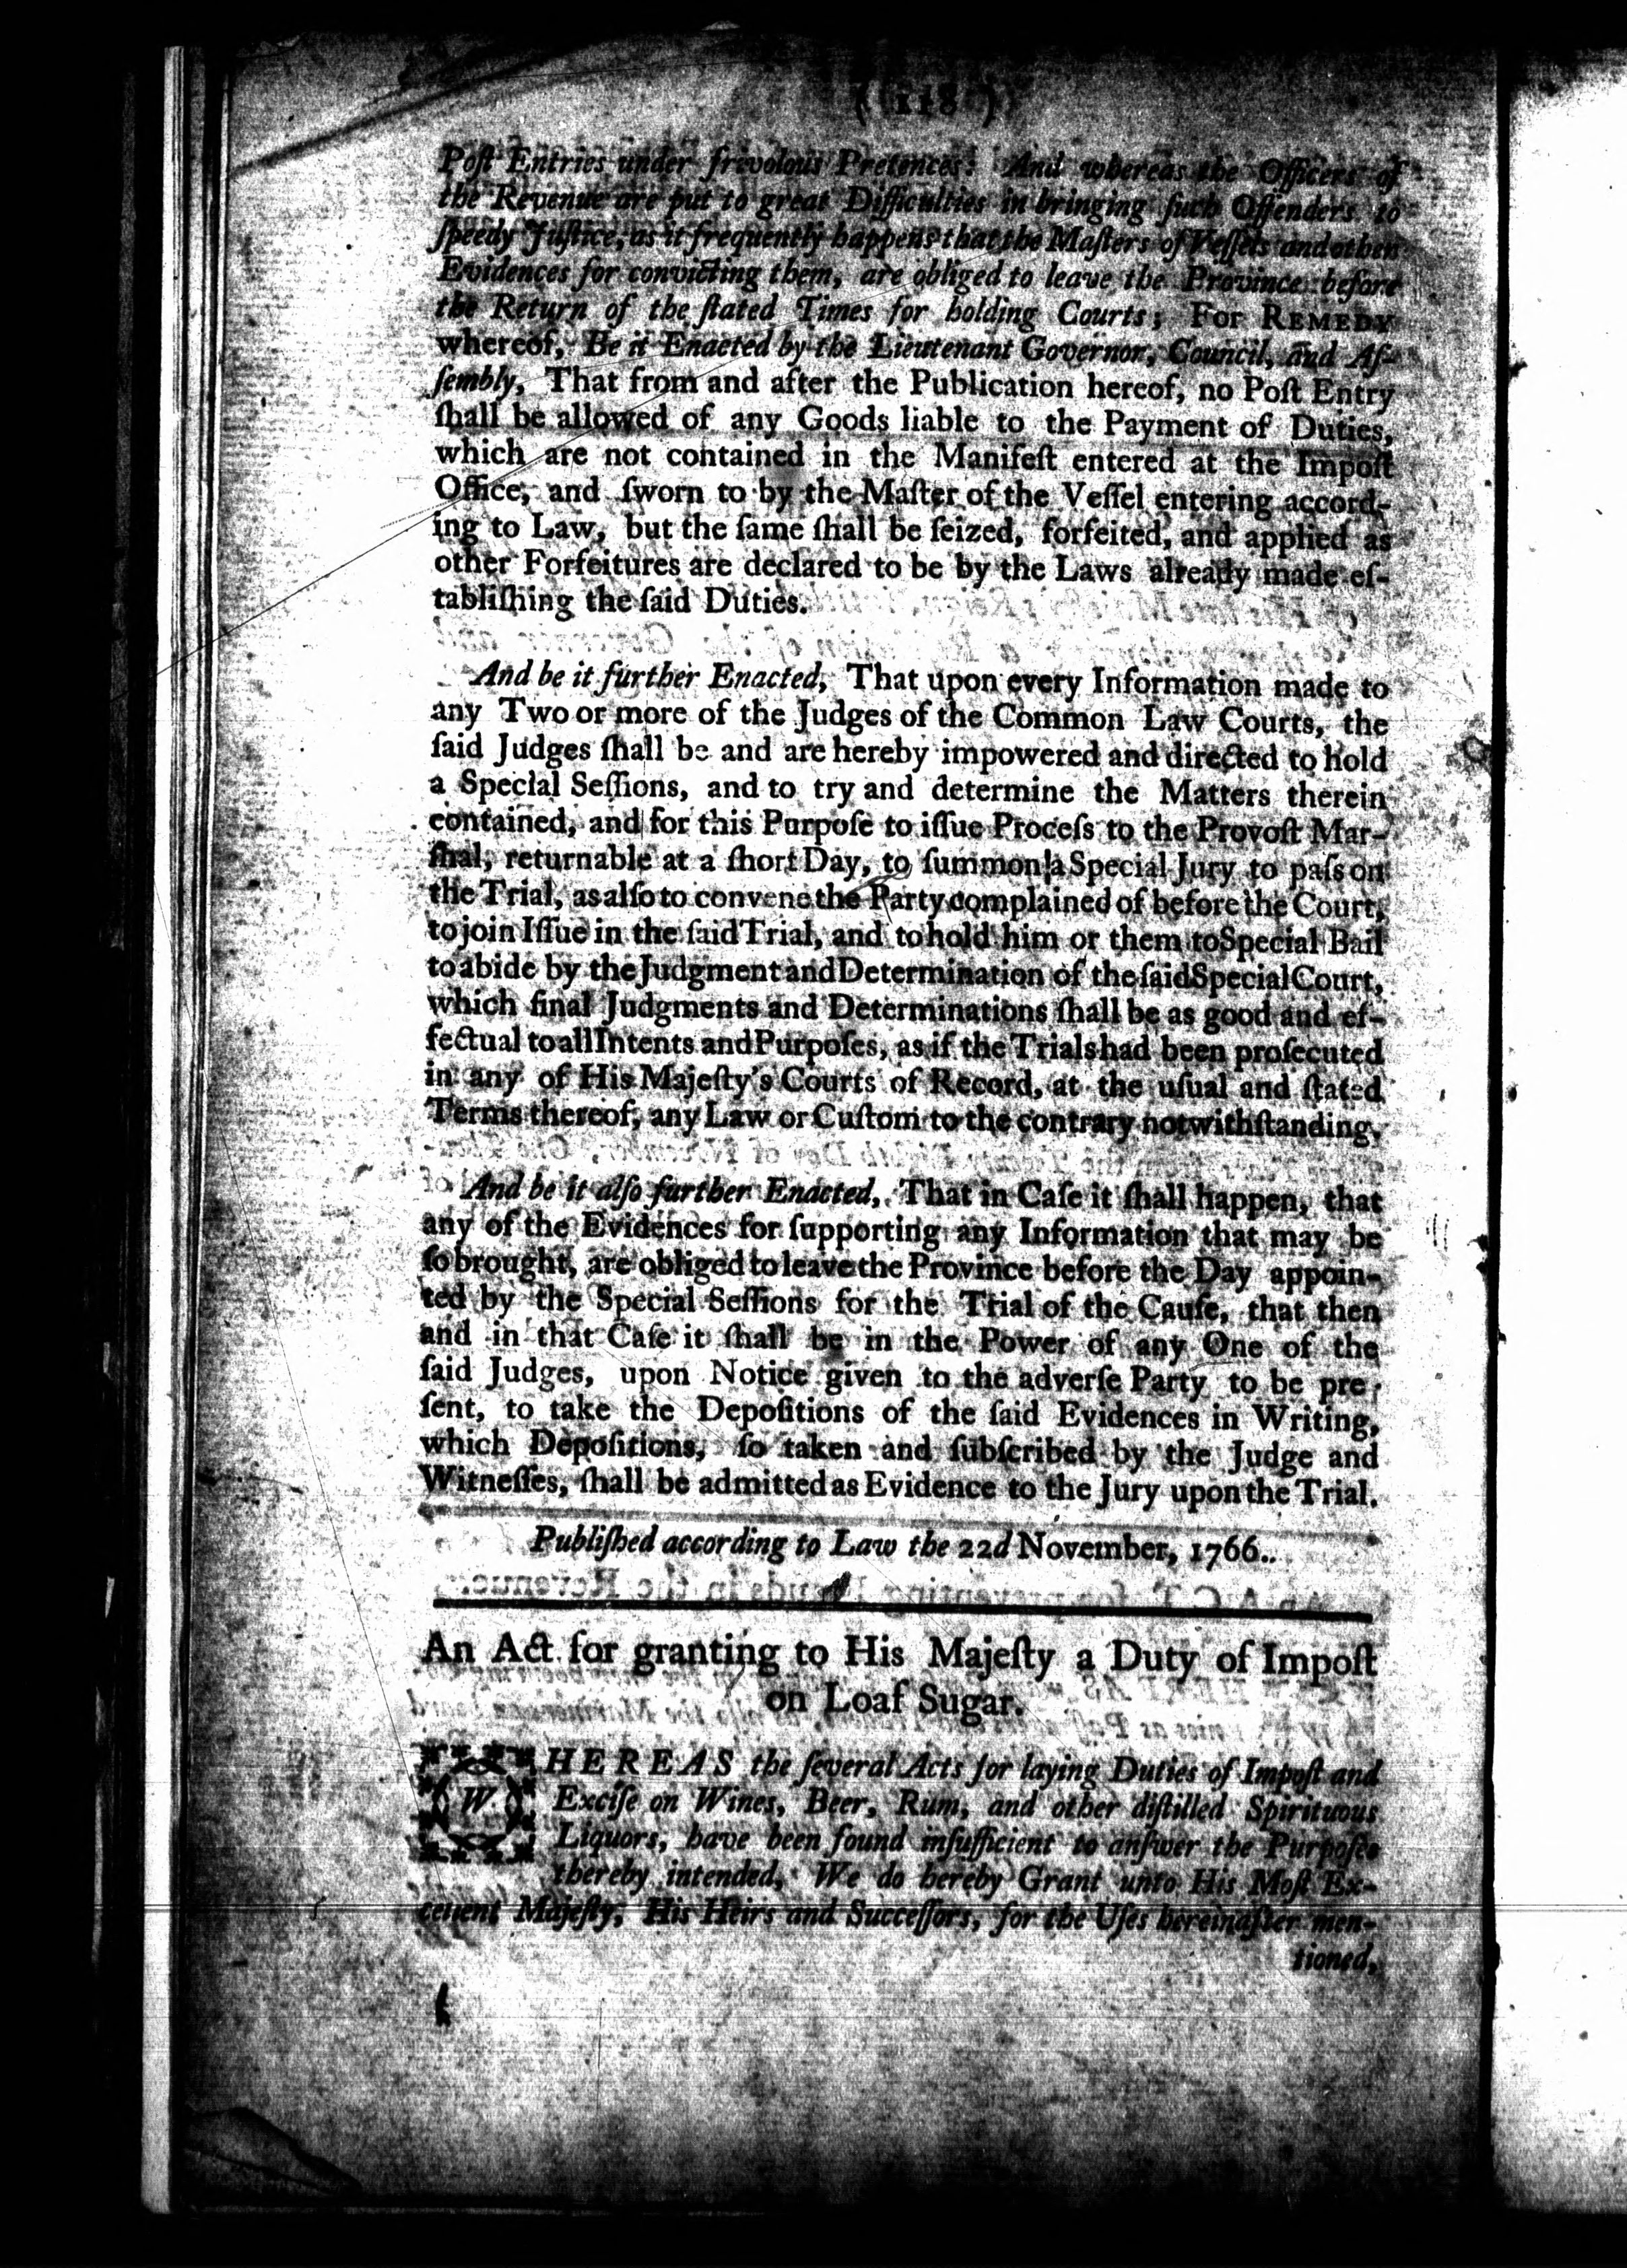 ( 118 )
Poſt Entries under frivolous Pretences: And whereas the Officers of
the Revenue are put to great Difficulties in bringing ſuch Offenders to
ſpeedy Juſtice, as it frequently happens that the Maſters of Veſſels and other
Evidences for convicting them, are obliged to leave the Province before
the Return of the ſtated Times for holding Courts; For REMEDY
whereof, Be it Enacted by the Lieutenant Governor, Council, and Aſ-
ſembly, That from and after the Publication hereof, no Poſt Entry
ſhall be allowed of any Goods liable to the Payment of Duties,
which are not contained in the Manifeſt entered at the Impoſt
Office, and ſworn to by the Maſter of the Veſſel entering accord-
ing to Law, but the ſame ſhall be ſeized, forfeited, and applied as
other Forfeitures are declared to be by the Laws already made eſ-
tabliſhing the ſaid Duties.
And be it further Enacted, That upon every Information made to
any Two or more of the Judges of the Common Law Courts, the
ſaid Judges ſhall be and are hereby impowered and directed to hold
a Special Seſſions, and to try and determine the Matters therein
contained, and for this Purpoſe to iſſue Proceſs to the Provoſt Mar-
ſhal, returnable at a ſhort Day, to ſummon a Special Jury to paſs on
the Trial, as alſo to convene the Party complained of before the Court,
to join Iſſue in the ſaid Trial, and to hold him or them to Special Bail
to abide by the Judgment and Determination of the ſaid Special Court,
which final Judgments and Determinations ſhall be as good and ef-
fectual to all Intents and Purpoſes, as if the Trials had been proſecuted
in any of His Majeſty's Courts of Record, at the uſual and ſtated
Terms thereof, any Law or Cuſtom to the contrary notwithſtanding.
And be it alſo further Enacted, That in Caſe it ſhall happen, that
any of the Evidences for ſupporting any Information that may be
ſo brought, are obliged to leave the Province before the Day appoin-
ted by the Special Seſſions for the Trial of the Cauſe, that then
and in that Caſe it ſhall be in the Power of any One of the
ſaid Judges, upon Notice given to the adverſe Party to be pre-
ſent, to take the Depoſitions of the ſaid Evidences in Writing,
which Depoſitions, ſo taken and ſubſcribed by the Judge and
Witneſſes, ſhall be admitted as Evidence to the Jury upon the Trial.
Publiſhed according to Law the 22d November, 1766..
An Act for granting to His Majeſty a Duty of Impoſt
on Loaf Sugar.
WHEREAS the ſeveral Acts for laying Duties of Impoſt and
Exciſe on Wines, Beer, Rum, and other diſtilled Spirituous
Liquors, have been found inſufficient to anſwer the Purpoſes
thereby intended, We do hereby Grant unto His Moſt Ex-
cellent Majeſty, His Heirs and Succeſſors, for the Uſes hereinafter men-
tioned,